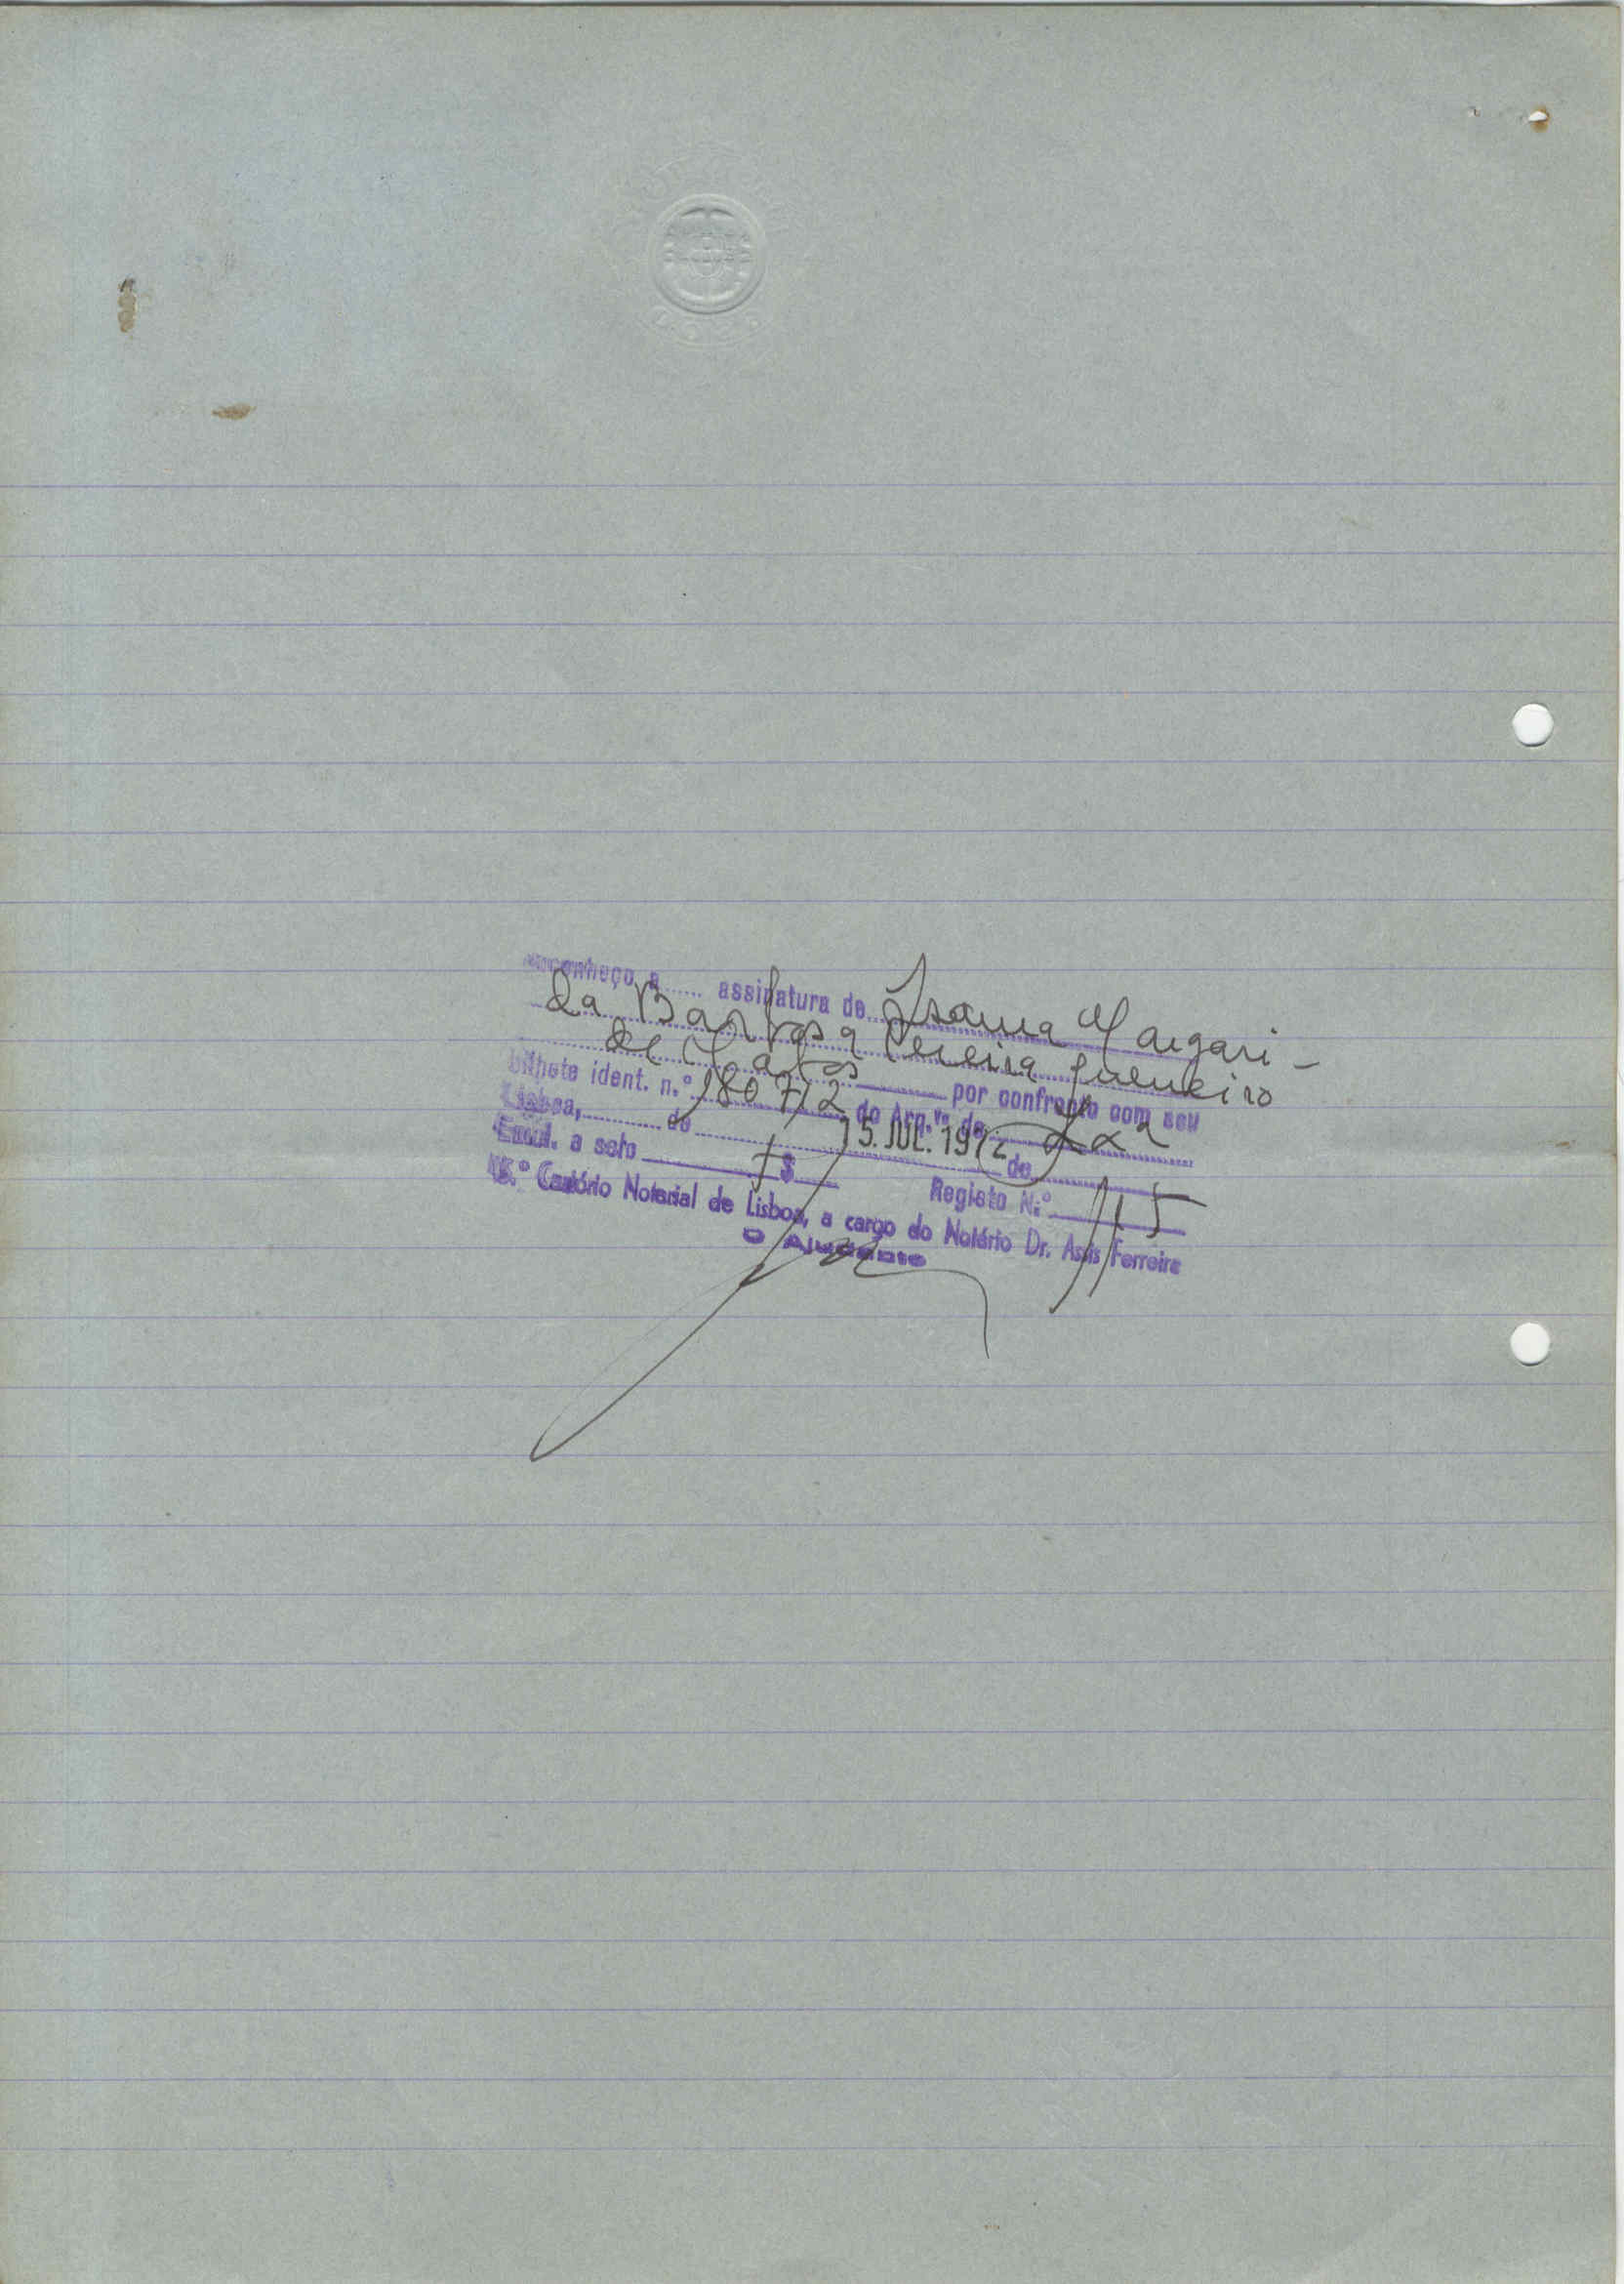 Reconheço a ...... assinatura de Isaura Margari-
da Barbosa Pereira Guerreiro
de Matos por confronto com seu
bilhete ident. n.º 180712 do Arq.vo de Lxª
Lisboa, de 15. JUL. 1972 de
Emol. a selo 7$
Registo N.º 115
º Cartório Notarial de Lisboa, a cargo do Notário Dr. Assis Ferreira
O Ajudante